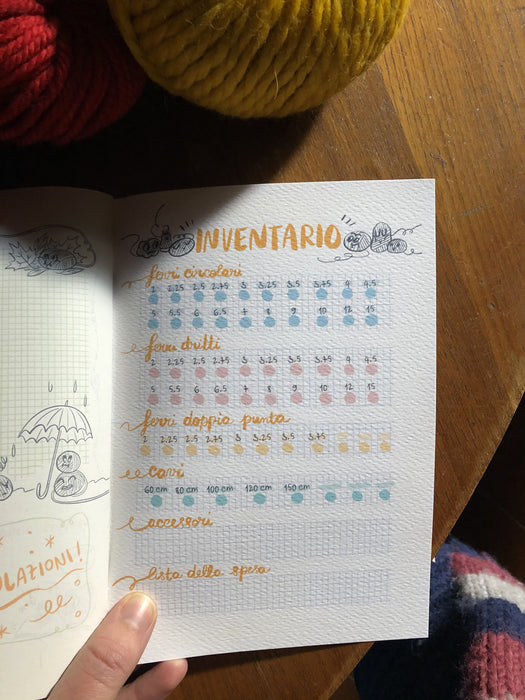 INVENTARIO
ferri circolari
2 2.25 2.5 2.75 3 3.25 3.5 3.75 4 4.5
5 5.5 6 6.5 7 8 9 10 12 15
ferri dritti
2 2.25 2.5 2.75 3 3.25 3.5 3.75 4 4.5
5 5.5 6 6.5 7 8 9 10 12 15
ferri doppia punta
2 2.25 2.5 2.75 3 3.25 3.5 3.75
cavi
60 cm 80 cm 100 cm 120 cm 150 cm
accessori
lista della spesa
OLAZIONI!